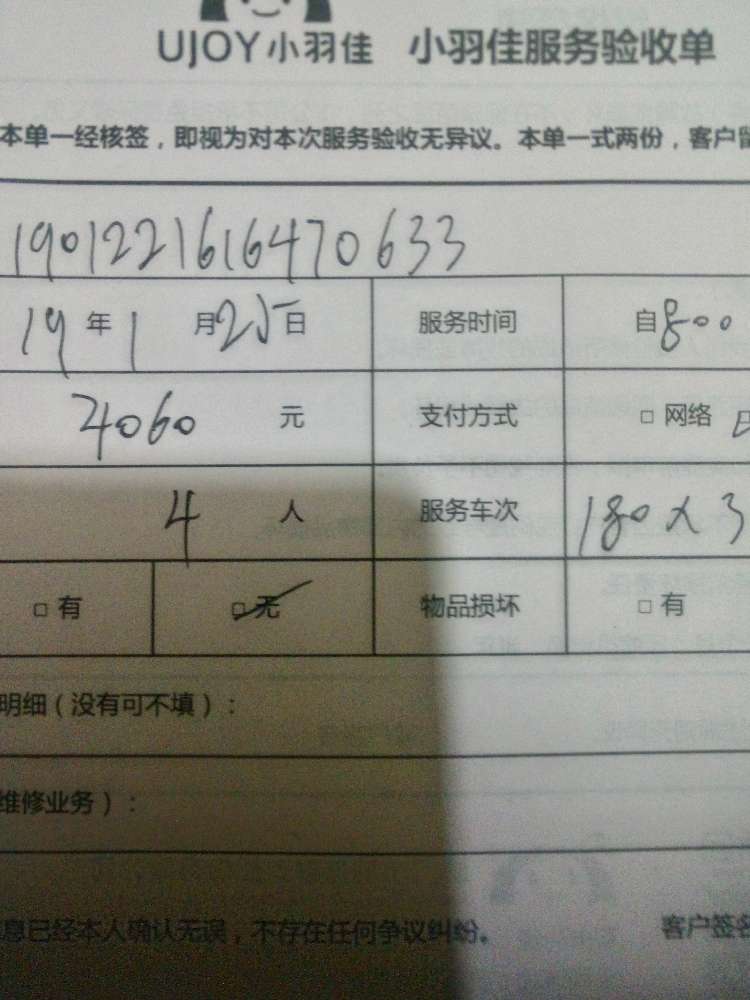 UJOY小羽佳 小羽佳服务验收单
本单一经核签，即视为对本次服务验收无异议。本单一式两份，客户留
1901221616470633
19年1月25日 服务时间 自800
4060元 支付方式 □ 网络
4人 服务车次 180×3
□ 有 □ 无 物品损坏 □ 有
明细（没有可不填）：
维修业务）：
息已经本人确认无误，不存在任何争议纠纷。 客户签名